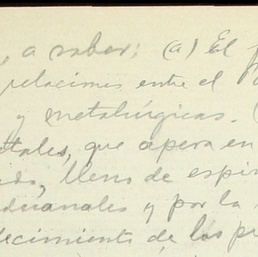 , a saber: (a) El
relaciones entre el
y metalúrgicas. (
tales, que opera en
lleno de espir
duanales y por la
lecimiento de los pr